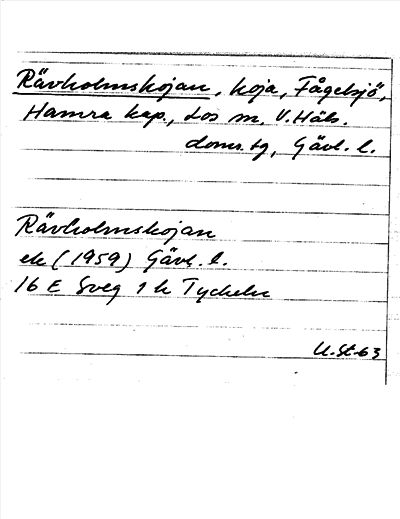 Rävholmskojan, koja, Fågelsjö,
Hamra kap., Los sn, V. Häls.
doms.tg, Gävl. l.
Rävholmskojan
ek (1959) Gävl. l.
16 E Sveg 1 h Tyckeln
U.St-63